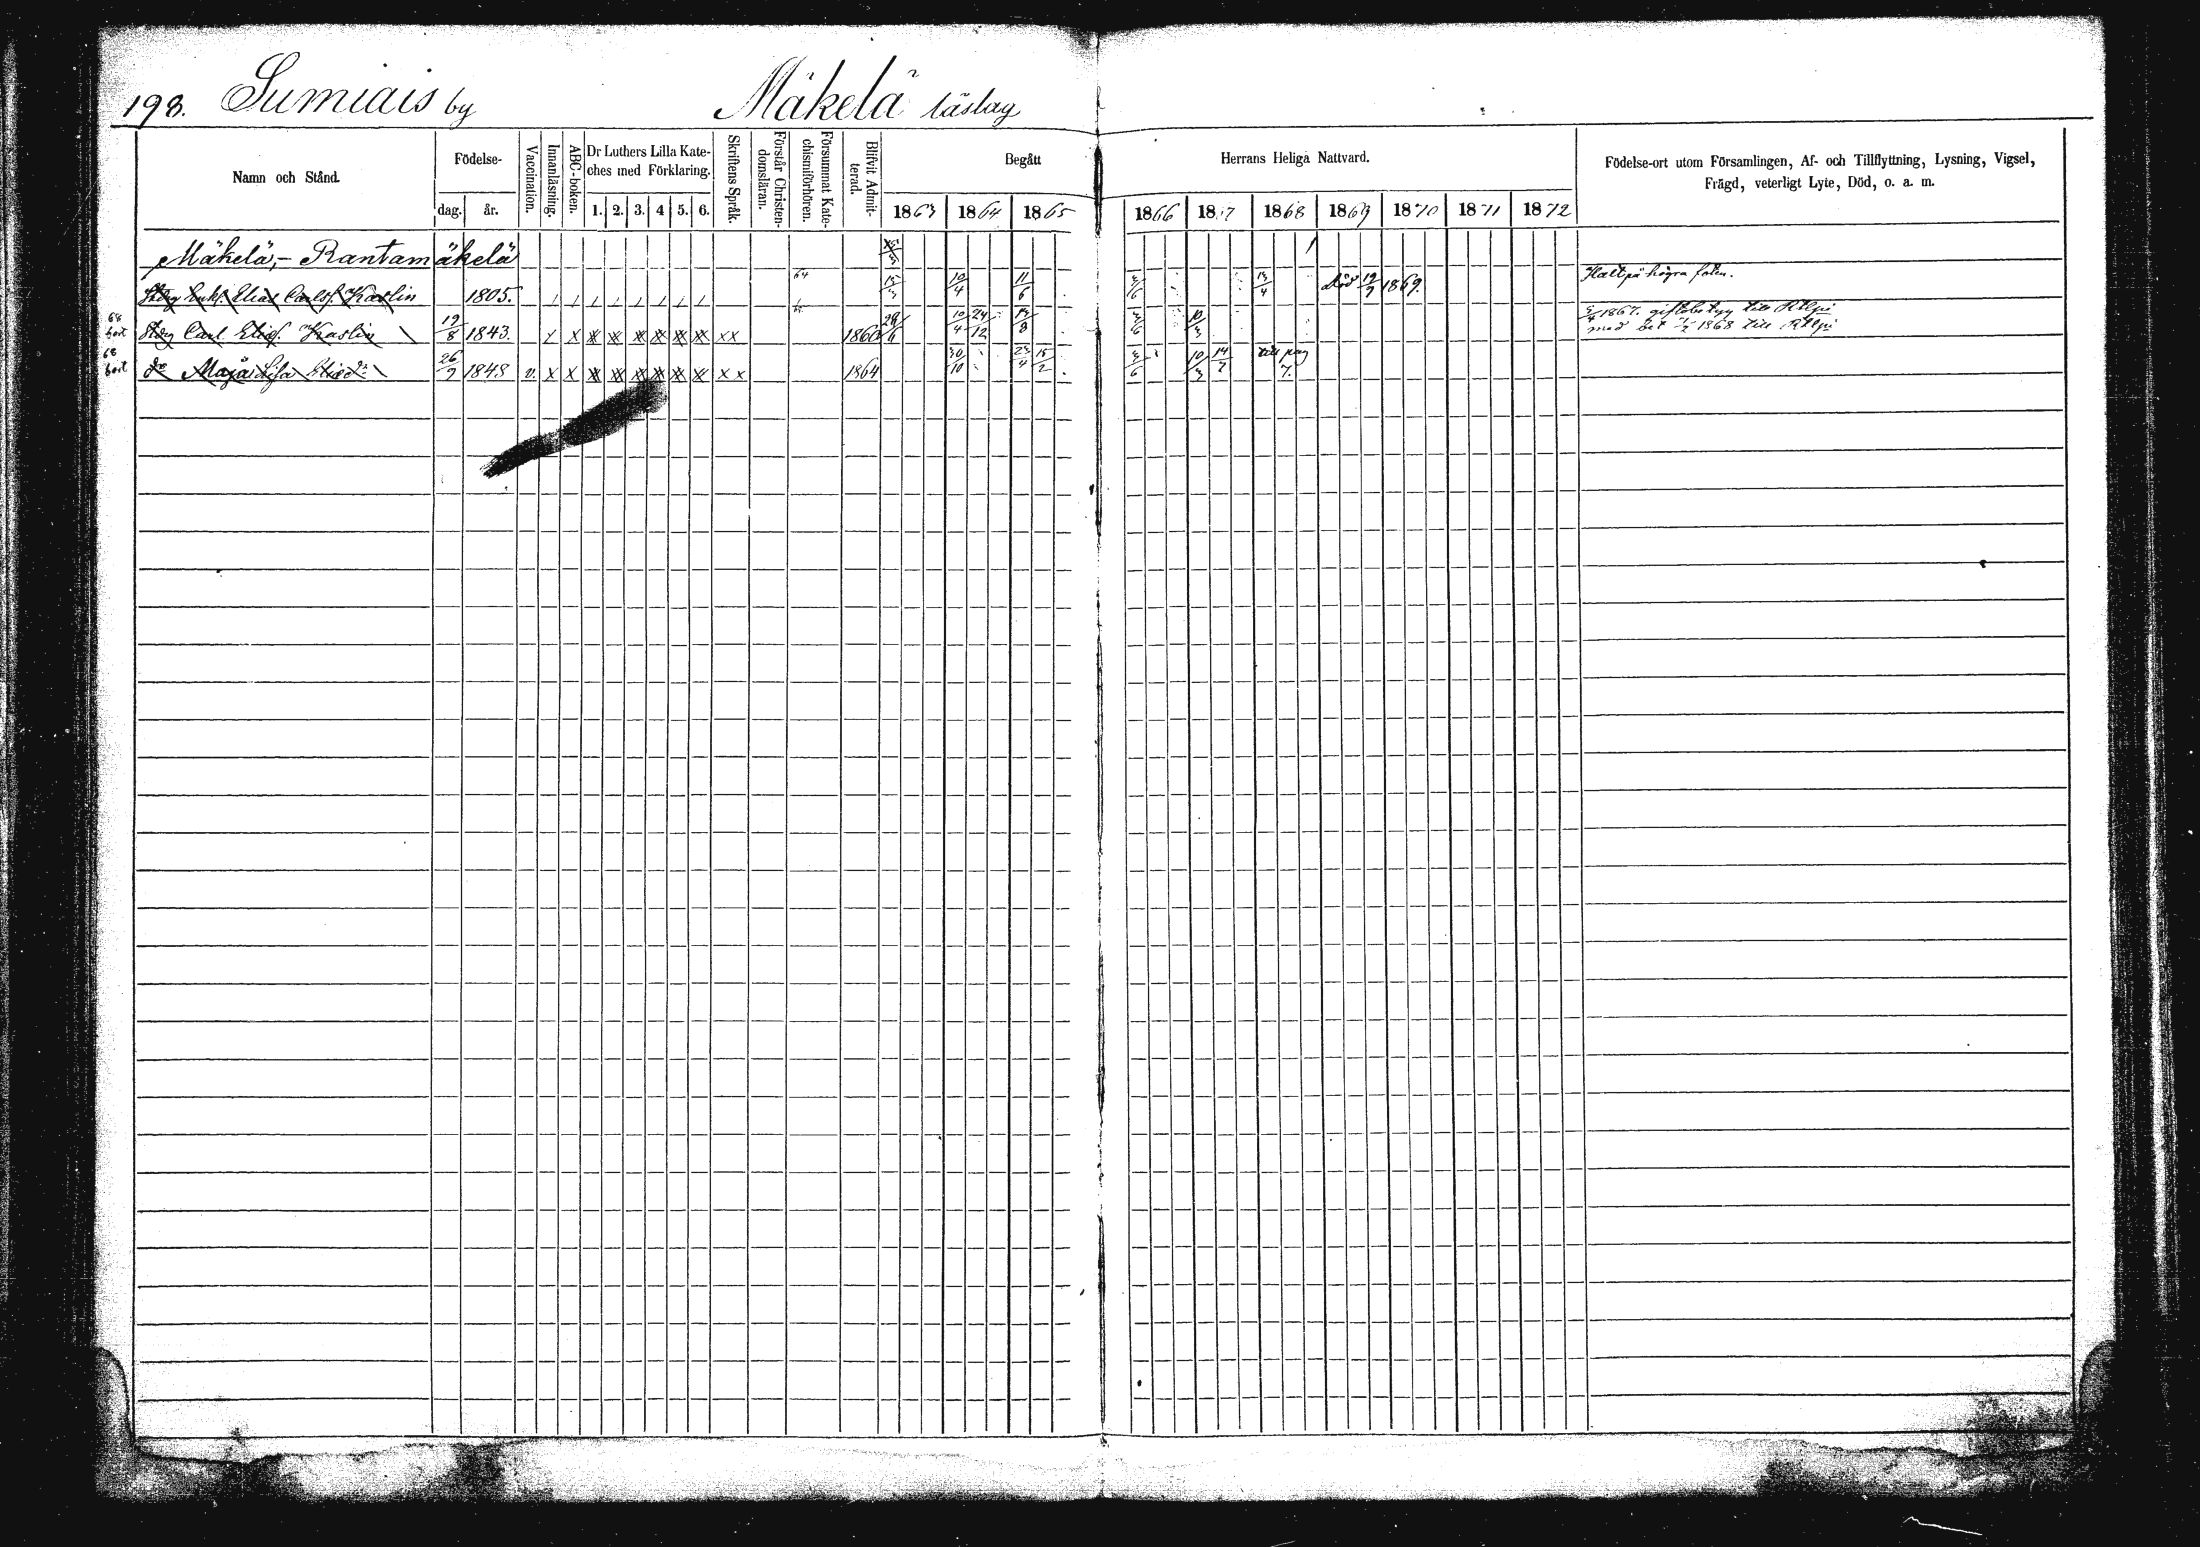 198. Sumiais by Mäkelä läslag
Namn och Stånd. Födelse- dag. år. Vaccination. Innanläsning. ABC-boken. Dr Luthers Lilla Kateches med Förklaring. 1. 2. 3. 4 5. 6. Skriftens Språk. Förstår Christendomsläran. Försummat Katechismiförhören. Blifvit Admitterad. Begått 1863 1864 1865
Herrans Heliga Nattvard. 1866 1867 1868 1869 1870 1871 1872
Födelse-ort utom Församlingen, Af- och Tillflyttning, Lysning, Vigsel,
Frägd, veterligt Lyte, Död, o. a. m.
Mäkelä,- Rantamäkelä
Enkl. Elias Carlsf. Kaslin 1805. 64 10/4 11/6 Död 19/9 1869. Halt på högra foten.
68 bort Carl Elief. Kaslin 19/8 1843. x x x x x x x x x x 1860 10/4 24/12 1867. giftobetyg till
med bet 1868 till
68 bort do Maja Lisa 26/9 1848 v. x x x x x x x x x x 1864 30/10 10/3 14/7 till pag 7.